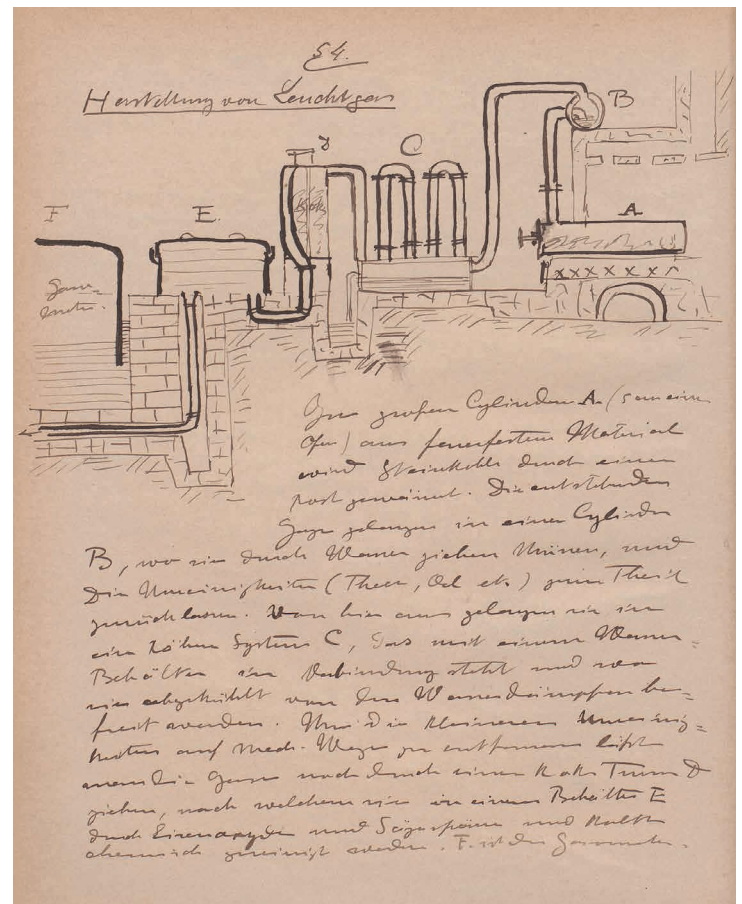 § 4.
Herstellung von Leuchtgas
B
C
F
E
A
Koks
Gaso-
meter.
In großen Cylindern A (
Ofen) aus feuerfestem Material
wird Steinkohle durch einen
Rost . Die entstehenden
Gase gelangen in einen Cylinder
B, wo sie durch Wasser ziehen müssen, und
die Unreinigkeiten (Theer, Oel etc) zum Theil
zurücklassen. Von hier aus gelangen sie in
ein Röhren System C, das mit einem Wasser-
Behälter in Verbindung steht und wo
sie abgekühlt von den Wasserdämpfen be-
freit werden. Um die kleineren Unreinig-
keiten auf mech. Wege zu entfernen läßt
man die Gase noch durch einen Koks Turm D
ziehen, nach welchem sie in einem Behälter E
durch Eisenoxyden und Sägespäne und Kalk
chemisch gereinigt werden. F. ist der Gasometer.